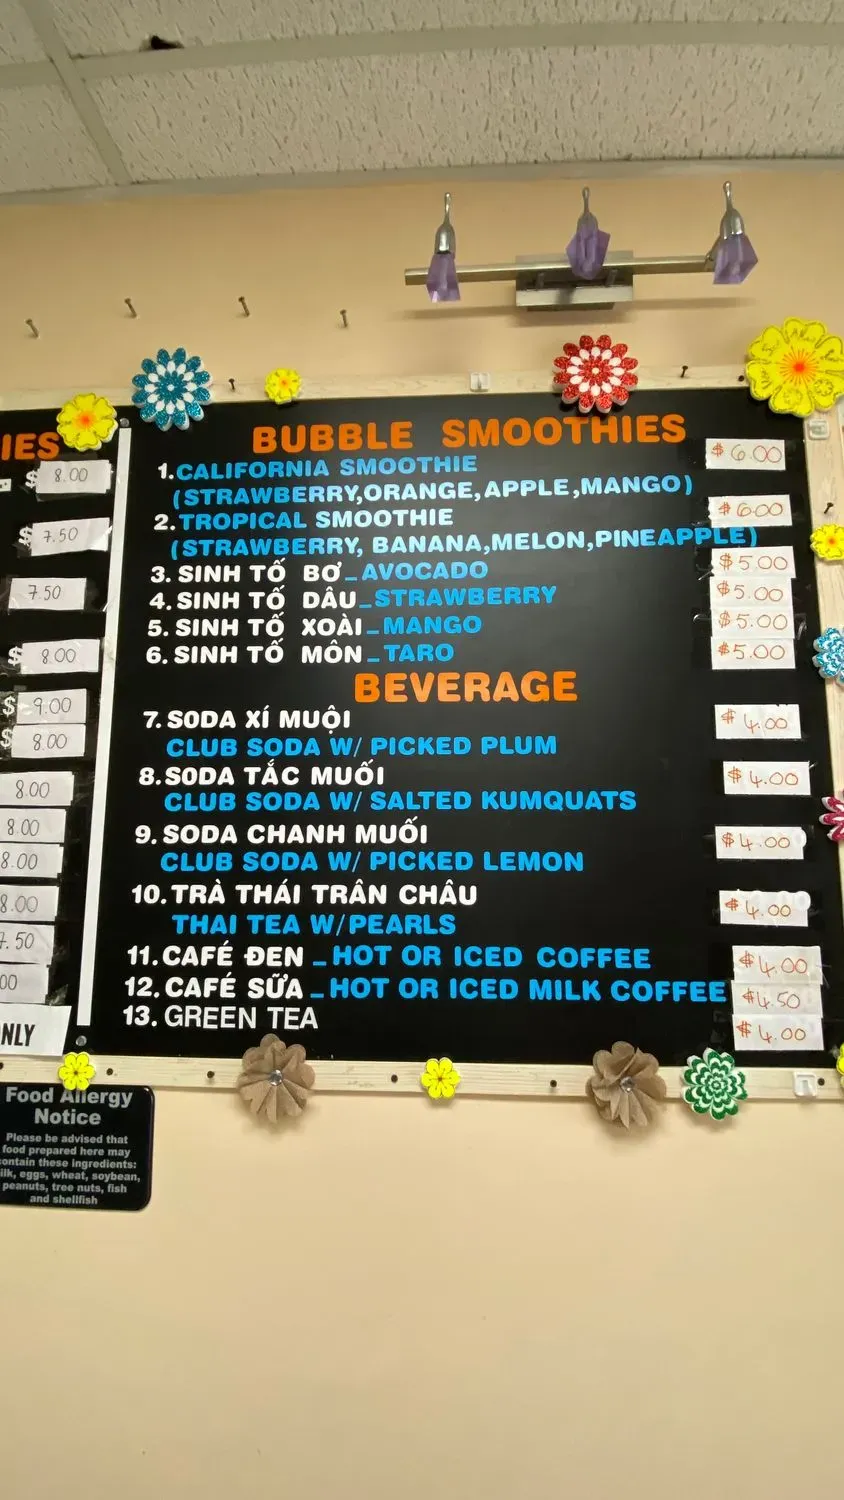 IES
$ 8.00
$ 7.50
7.50
$ 8.00
$ 9.00
$ 8.00
8.00
8.00
8.00
8.00
7.50
00
NLY
BUBBLE SMOOTHIES
1.CALIFORNIA SMOOTHIE $6.00
(STRAWBERRY,ORANGE,APPLE,MANGO)
2.TROPICAL SMOOTHIE $6.00
(STRAWBERRY, BANANA,MELON,PINEAPPLE)
3. SINH TỐ BƠ_AVOCADO $5.00
4. SINH TỐ DÂU_STRAWBERRY $5.00
5. SINH TỐ XOÀI_MANGO $5.00
6. SINH TỐ MÔN_TARO $5.00
BEVERAGE
7. SODA XÍ MUỘI $4.00
CLUB SODA W/ PICKED PLUM
8.SODA TẮC MUỐI $4.00
CLUB SODA W/ SALTED KUMQUATS
9. SODA CHANH MUỐI $4.00
CLUB SODA W/ PICKED LEMON
10.TRÀ THÁI TRÂN CHÂU $4.00
THAI TEA W/PEARLS
11.CAFÉ ĐEN _ HOT OR ICED COFFEE $4.00
12. CAFÉ SỮA _ HOT OR ICED MILK COFFEE $4.50
13. GREEN TEA $4.00
Food Allergy
Notice
Please be advised that
food prepared here may
ontain these ingredients:
ilk, eggs, wheat, soybean,
peanuts, tree nuts, fish
and shellfish